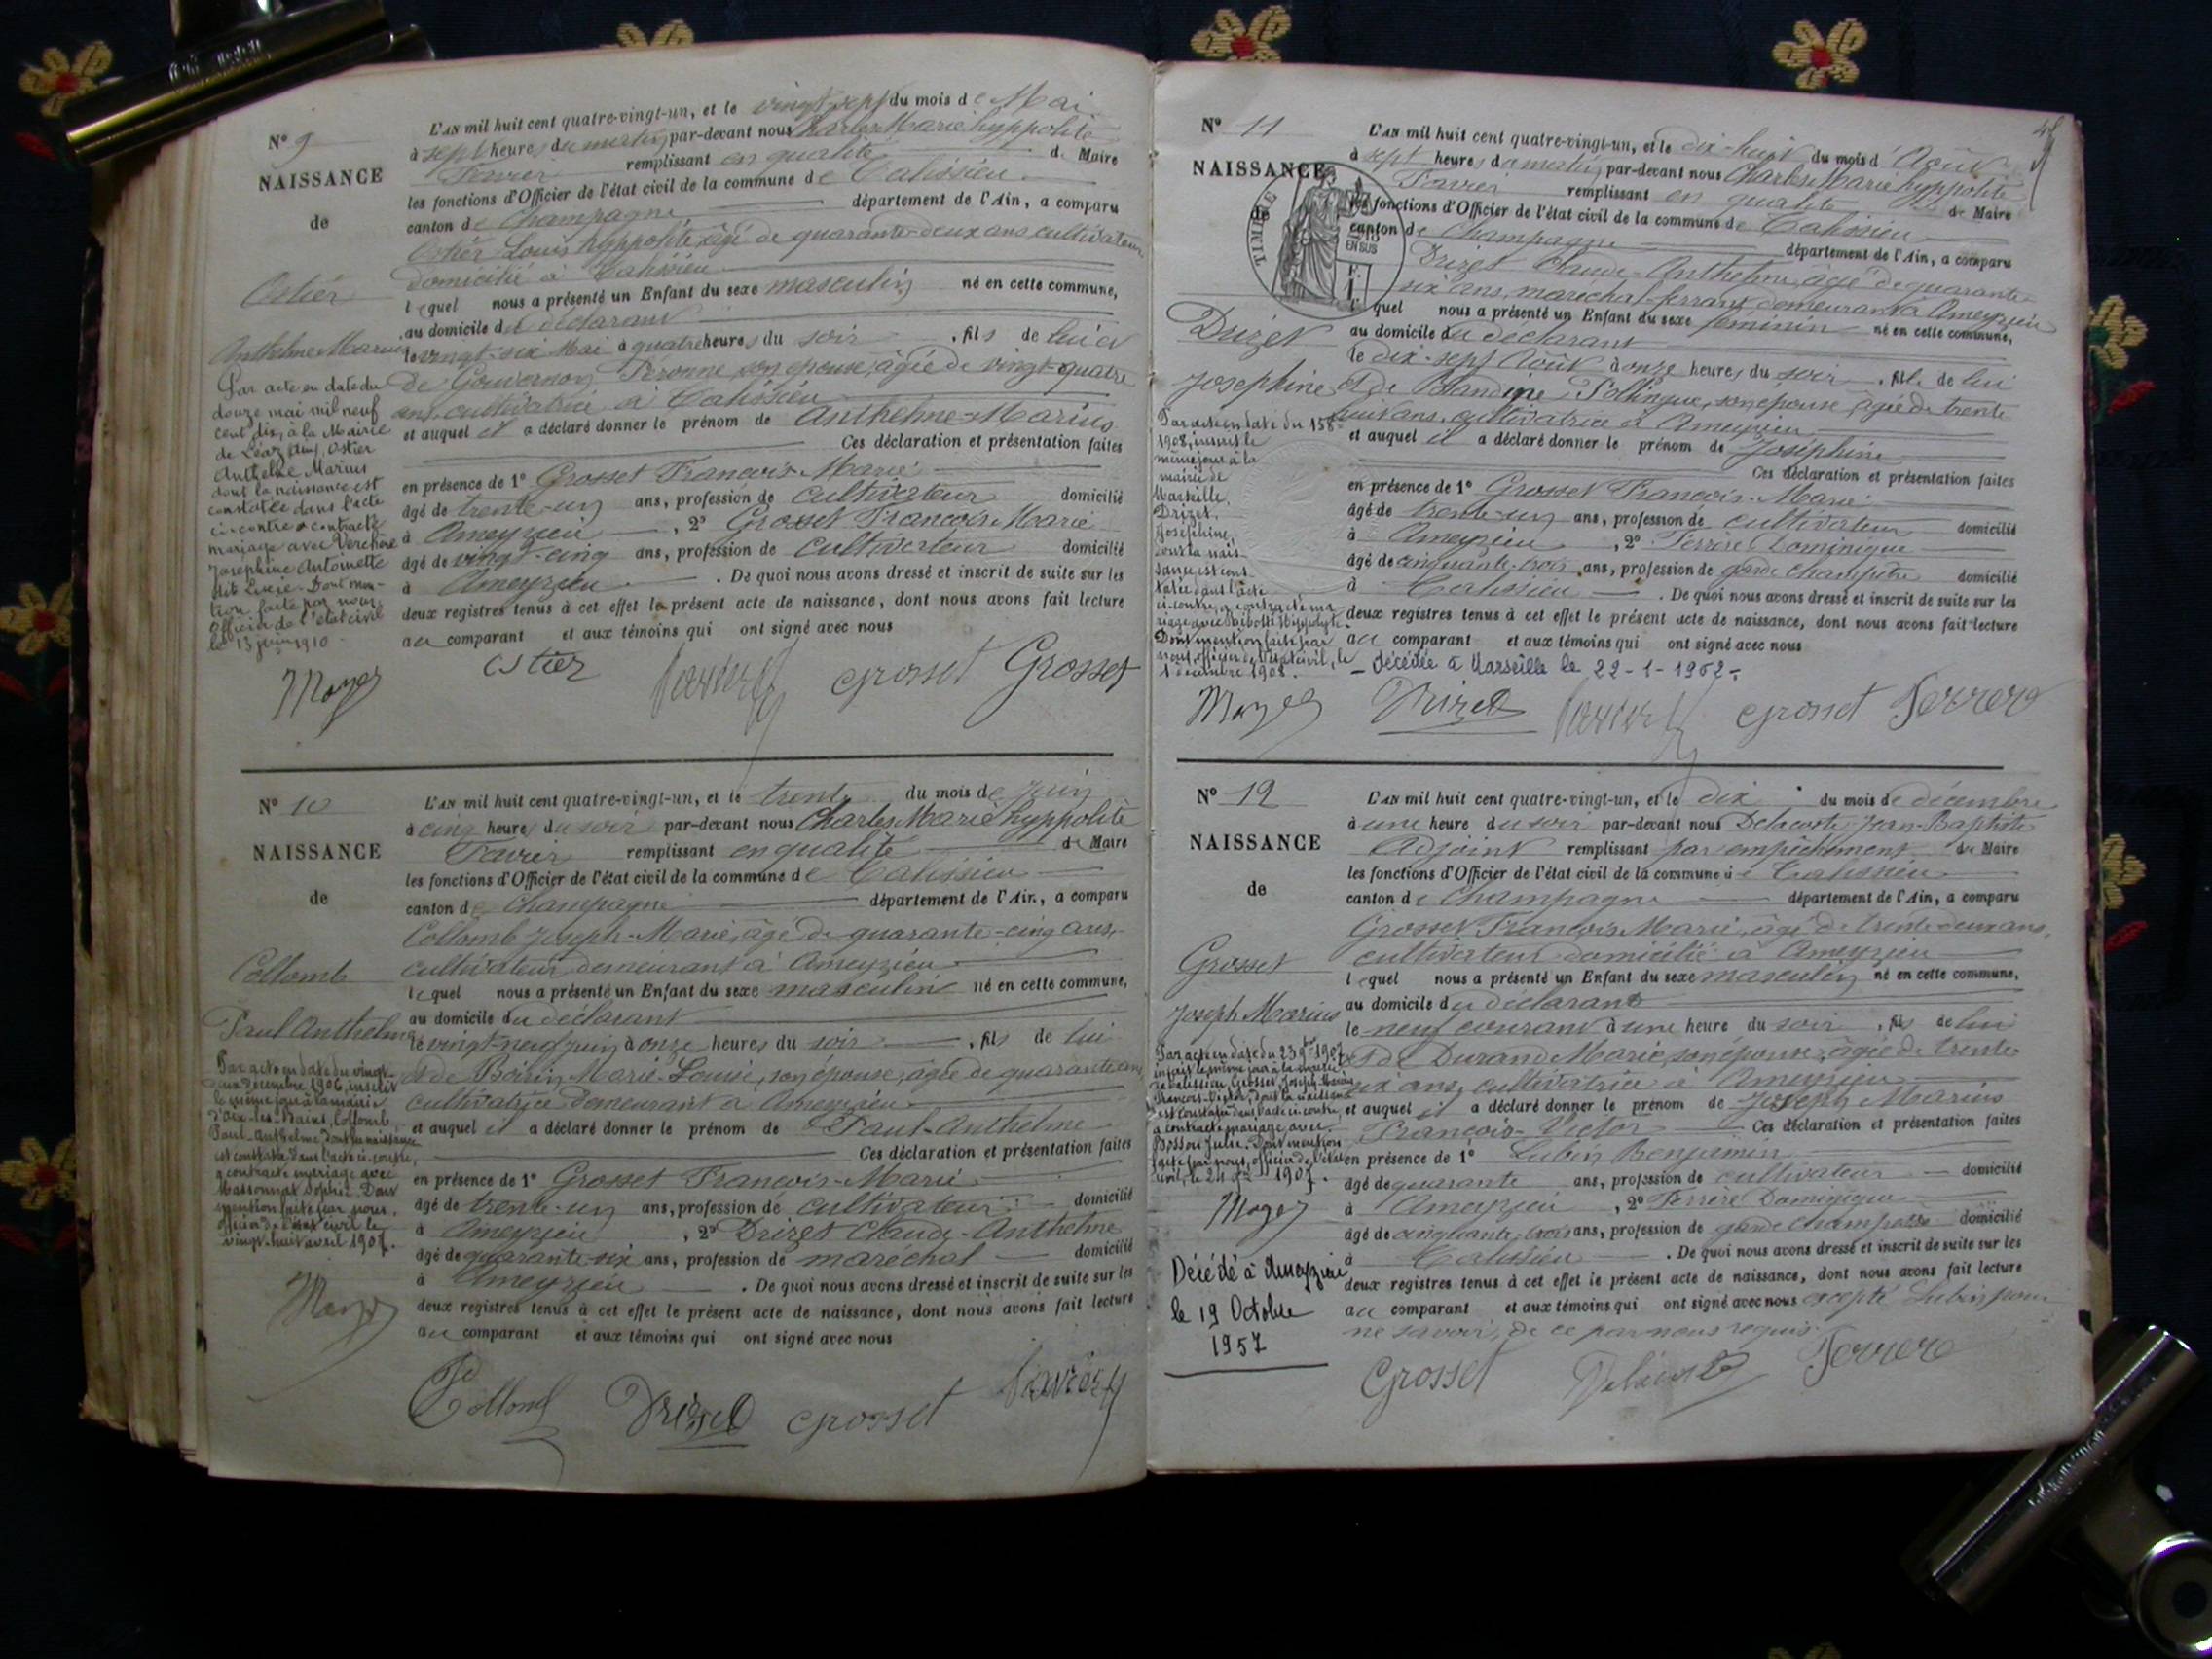 N° 9
NAISSANCE
de
Ostier
Anthelme Marius
Par acte en date du
douze mai mil neuf
cent dix, à la Mairie
de Léaz (Ain), Ostier
Anthelme Marius
dont la naissance est
constatée dans l'acte
ci-contre a contracté
mariage avec Verchère
Joséphine Antoinette
dit Lucie. Dont men-
tion faite par nous,
officier de l'état civil
le 13 juin 1910
Mayer
L'AN mil huit cent quatre-vingt-un, et le vingt-sept du mois de Mai
à sept heures du matin, par-devant nous Charles Marie hyppolite
Favier remplissant en qualité de Maire
les fonctions d'Officier de l'état civil de la commune de Talissieu
canton de Champagne département de l'Ain, a comparu
Ostier Louis hyppolite âgé de quarante-deux ans cultivateur
domicilié à Talissieu
lequel nous a présenté un Enfant du sexe masculin né en cette commune,
au domicile du déclarant
le vingt-six Mai à quatre heures du soir, fils de lui et
de Gouvernon Péronne son épouse, âgée de vingt-quatre
ans cultivatrice à Talissieu
et auquel il a déclaré donner le prénom de Anthelme-Marius
Ces déclaration et présentation faites
en présence de 1° Grosset François-Marie
âgé de trente-un ans, profession de cultivateur domicilié
à Ameyzieu, 2° Grosset François Marie
âgé de vingt-cinq ans, profession de cultivateur domicilié
à Ameyzieu. De quoi nous avons dressé et inscrit de suite sur les
deux registres tenus à cet effet le présent acte de naissance, dont nous avons fait lecture
au comparant et aux témoins qui ont signé avec nous
Ostier Favier Grosset Grosset
N° 10
NAISSANCE
de
Collomb
Paul Anthelme
Par acte en date du vingt-
deux décembre 1906, inscrit
le même jour à la mairie
d'Aix-les-Bains, Collomb
Paul-Anthelme dont la naissance
est constatée dans l'acte ci-contre,
a contracté mariage avec
Massonnat Sophie. Dont
mention faite par nous,
officier de l'état civil le
vingt-huit avril 1907.
Mayer
L'AN mil huit cent quatre-vingt-un, et le trente du mois de juin
à cinq heures du soir par-devant nous Charles Marie hyppolite
Favier remplissant en qualité de Maire
les fonctions d'Officier de l'état civil de la commune de Talissieu
canton de Champagne département de l'Ain, a comparu
Collomb Joseph-Marie, âgé de quarante-cinq ans,
cultivateur demeurant à Ameyzieu
lequel nous a présenté un Enfant du sexe masculin né en cette commune,
au domicile du déclarant
le vingt-neuf juin à onze heures du soir, fils de lui
et de Marie-Louise, son épouse, âgée de quarante ans
cultivatrice demeurant à Ameyzieu
et auquel il a déclaré donner le prénom de Paul-Anthelme
Ces déclaration et présentation faites
en présence de 1° Grosset François-Marie
âgé de trente-un ans, profession de cultivateur domicilié
à Ameyzieu, 2° Drizet Claude-Anthelme
âgé de quarante-six ans, profession de maréchal domicilié
à Ameyzieu. De quoi nous avons dressé et inscrit de suite sur les
deux registres tenus à cet effet le présent acte de naissance, dont nous avons fait lecture
au comparant et aux témoins qui ont signé avec nous
Collomb Drizet Grosset Favier
48
N° 11
NAISSANCE
de
TIMBRE
EN SUS
Drizet
Joséphine
Par acte en date du 1908, inscrit le
même jour à la
mairie de
Marseille,
Drizet
Joséphine
dont la nais-
sance est cons-
tatée dans l'acte
ci-contre, a contracté ma-
riage avec Hippolyte
Dont mention faite par
nous, officier de l'état civil, le
1 décembre 1908.
Mayer
L'AN mil huit cent quatre-vingt-un, et le dix-huit du mois d'Août
à sept heures du matin, par-devant nous Charles Marie hyppolite
Favier remplissant en qualité de Maire
les fonctions d'Officier de l'état civil de la commune de Talissieu
canton de Champagne département de l'Ain, a comparu
Drizet Claude-Anthelme, âgé de quarante-
six ans, maréchal-ferrant demeurant à Ameyzieu
lequel nous a présenté un Enfant du sexe féminin né en cette commune,
au domicile du déclarant
le dix-sept Août à onze heures du soir, fille de lui
et de Blandine Pollingue, son épouse, âgée de trente
huit ans, cultivatrice à Ameyzieu
et auquel il a déclaré donner le prénom de Joséphine
Ces déclaration et présentation faites
en présence de 1° Grosset François-Marie
âgé de trente-un ans, profession de cultivateur domicilié
à Ameyzieu, 2° Ferrère Dominique
âgé de cinquante-trois ans, profession de garde champêtre domicilié
à Talissieu. De quoi nous avons dressé et inscrit de suite sur les
deux registres tenus à cet effet le présent acte de naissance, dont nous avons fait lecture
au comparant et aux témoins qui ont signé avec nous
- Décédée à Marseille le 22-1-1962 -
Drizet Favier Grosset Ferrere
N° 12
NAISSANCE
de
Grosset
Joseph Marius
Par acte en date du 23 1907
inscrit le même jour à la mairie
de Talissieu, Grosset Joseph-Marius
François-Victor, dont la naissance
est constatée dans l'acte ci-contre,
a contracté mariage avec
Bosson Julie. Dont mention
faite par nous, officier de l'état
civil, le 24 1907.
Mayer
Décédé à Ameyzieu
le 19 Octobre
1957
L'AN mil huit cent quatre-vingt-un, et le dix du mois de décembre
à une heure du soir par-devant nous Delacoste Jean-Baptiste
Adjoint remplissant par empêchement du Maire
les fonctions d'Officier de l'état civil de la commune de Talissieu
canton de Champagne département de l'Ain, a comparu
Grosset François Marie, âgé de trente-deux ans,
cultivateur domicilié à Ameyzieu
lequel nous a présenté un Enfant du sexe masculin né en cette commune,
au domicile du déclarant
le neuf courant à une heure du soir, fils de lui
et de Durand Marie, son épouse, âgée de trente
six ans, cultivatrice à Ameyzieu
et auquel il a déclaré donner le prénom de Joseph Marius
François-Victor Ces déclaration et présentation faites
en présence de 1° Lubin Benjamin
âgé de quarante ans, profession de cultivateur domicilié
à Ameyzieu, 2° Ferrère Dominique
âgé de cinquante-trois ans, profession de garde champêtre domicilié
à Talissieu. De quoi nous avons dressé et inscrit de suite sur les
deux registres tenus à cet effet le présent acte de naissance, dont nous avons fait lecture
au comparant et aux témoins qui ont signé avec nous excepté Lubin pour
ne savoir, de ce par nous requis
Grosset Delacoste Ferrere